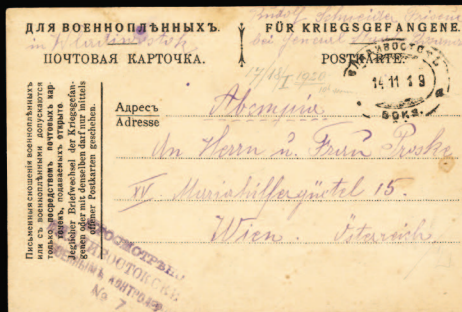 ДЛЯ ВОЕННОПЛѢННЫХЪ.
FÜR KRIEGSGEFANGENE.
Rudolf
in Wladiwostok
bei General
ПОЧТОВАЯ КАРТОЧКА.
POSTKARTE.
17/III 1920
ВЛАДИВОСТОКЪ
14 11 19
ВОКЗ.
Письменныя сношенія военноплѣнныхъ
или съ военноплѣнными допускаются
только посредствомъ почтовыхъ кар-
точекъ, подаваемыхъ открыто.
Jeglicher Briefwechsel der Kriegsgefan-
genen oder mit denselben darf nur mittels
offener Postkarten geschehen.
Адресъ
Adresse
Австрія
An Herrn u. Frau Proske
XV Mariahilfergürtel 15.
Wien. Österreich.
ПРОСМОТРѢНО
ВЛАДИВОСТОКСКИ
ВОЕННЫМЪ КОНТРОЛЕ
№ 7